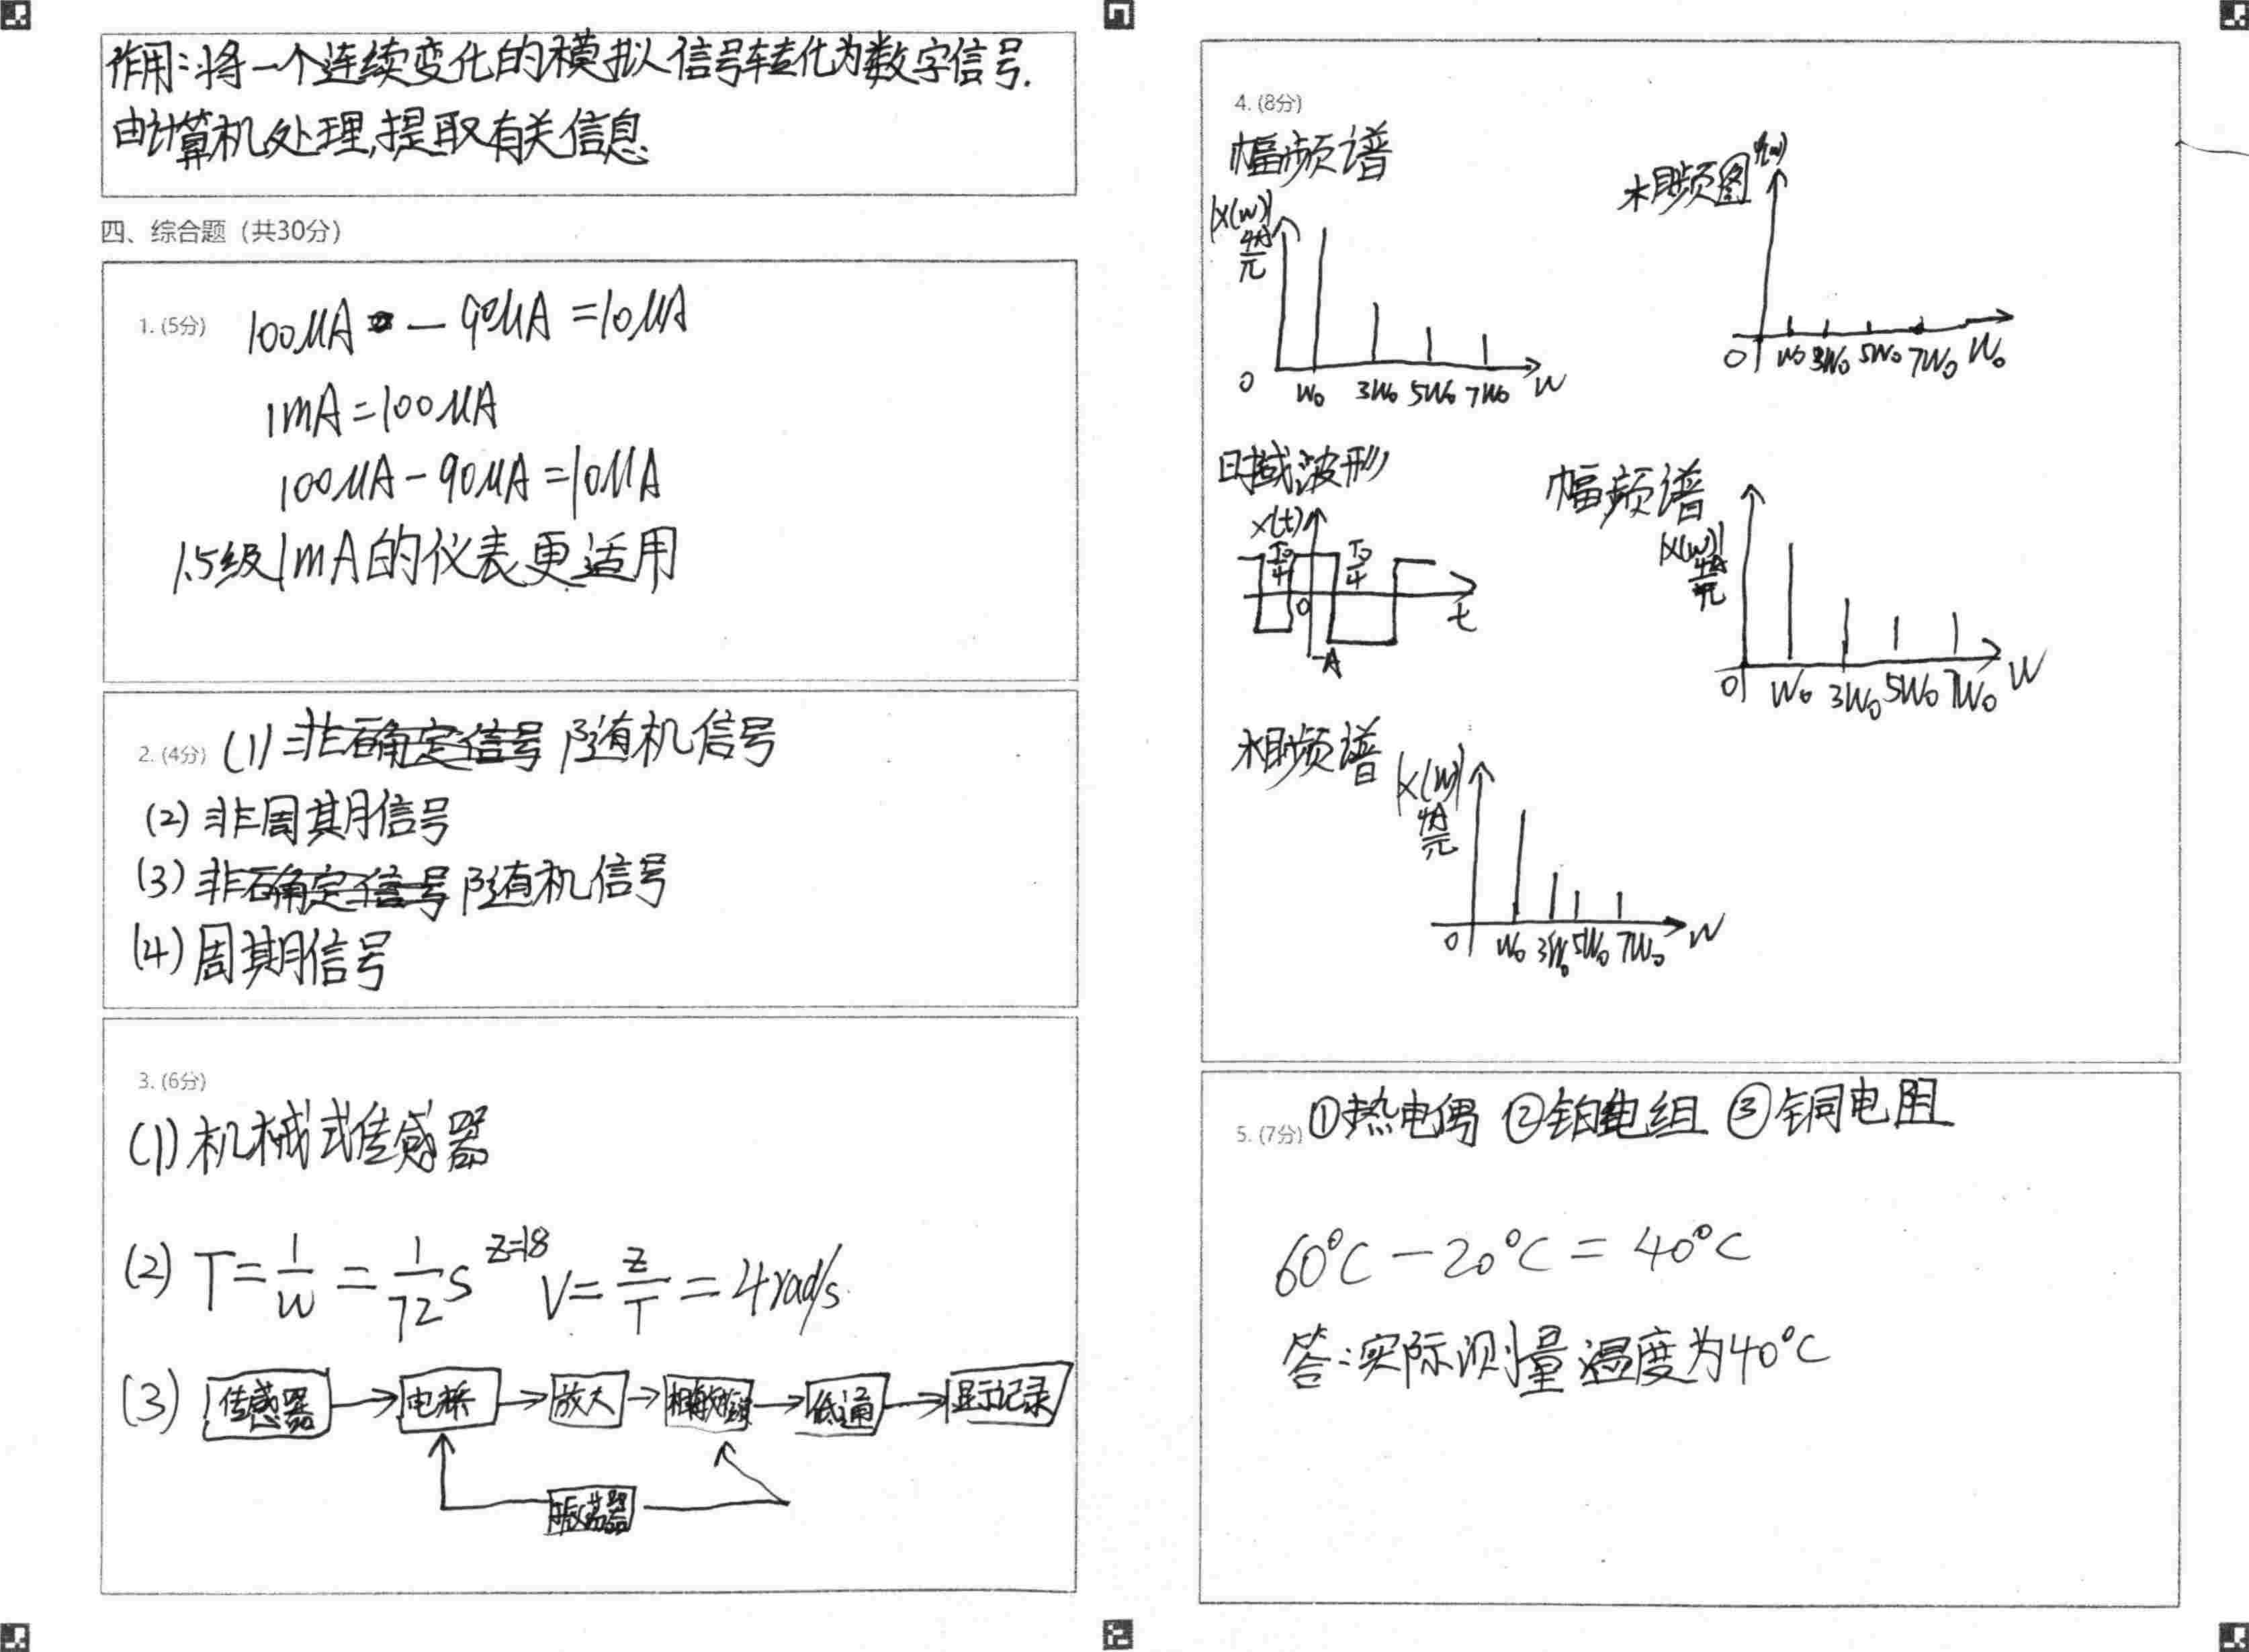 作用：将一个连续变化的模拟信号转化为数字信号.
由计算机处理,提取有关信息
四、综合题（共30分）
1. (5分) 100μA - 90μA = 10μA
1mA = 100μA
100μA - 90μA = 10μA
1.5级1mA的仪表更适用
2. (4分) (1) 非确定信号 随机信号
(2) 非周期信号
(3) 非确定信号 随机信号
(4) 周期信号
3. (6分)
(1) 机械式传感器
(2) T = 1/W = 1/72 S Z=18 V = Z/T = 4rad/s.
(3) 传感器 电桥 放大 低通 显示记录
振荡器
4. (8分)
幅频谱
|X(w)|
4A/π
0 W₀ 3W₀ 5W₀ 7W₀ W
相频图
0 W₀ 3W₀ 5W₀ 7W₀ W₀
时域波形
x(t)
T₀/4 T₀/4
0 t
-A
幅频谱
|X(w)|
4A/π
0 W₀ 3W₀ 5W₀ 7W₀ W
相频谱
|X(w)|
4A/π
0 W₀ 3W₀ 5W₀ 7W₀ W
5. (7分) ①热电偶 ②铂电组 ③铜电阻
60°C - 20°C = 40°C
答：实际测量温度为40°C